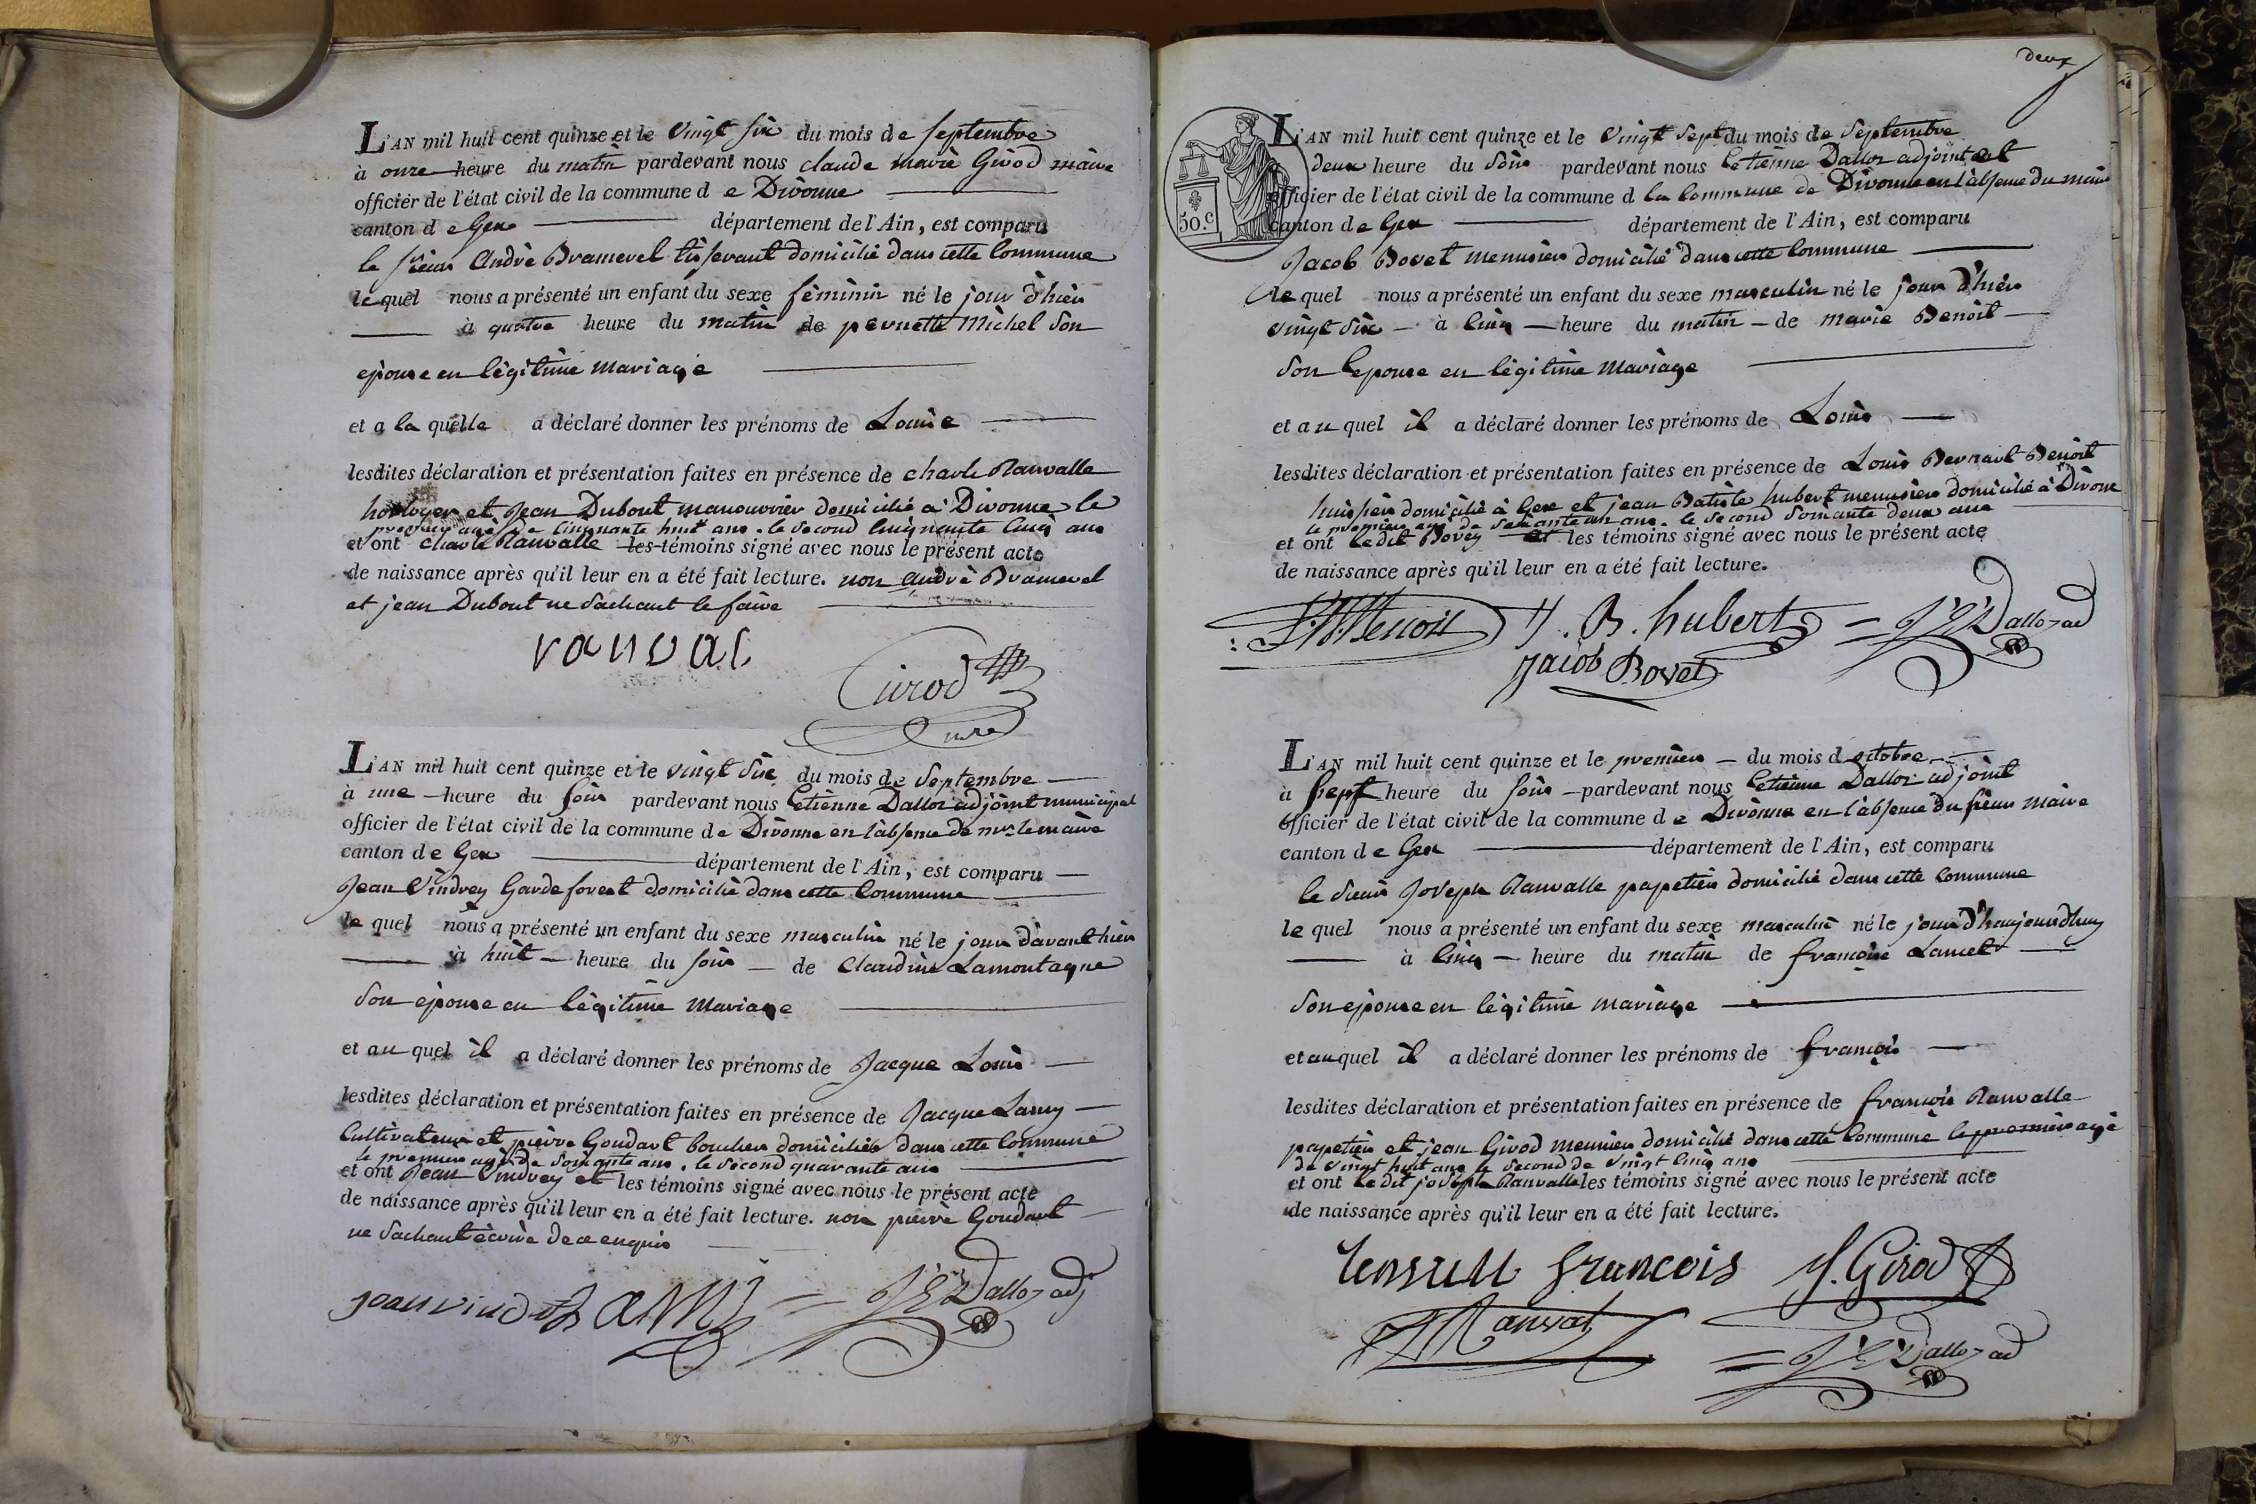 L'AN mil huit cent quinze et le vingt six du mois de septembre
à onze heure du matin pardevant nous claude marie Girod maire
officier de l'état civil de la commune d e Divonne
canton d e Gex département de l'Ain, est comparu
le sieur André Bramerel tisserant domicilié dans cette Commune
le quel nous a présenté un enfant du sexe féminin né le jour d'hier
à quatre heure du matin de pernette Michel son
epouse en légitime mariage
et a la quelle a déclaré donner les prénoms de Louise
lesdites déclaration et présentation faites en présence de charle Ranvalle
horloger et Jean Dubout manouvrier domicilié à Divonne le
premier agé de Cinquante huit ans. le second Cinquante Cinq ans
et ont charle Ranvalle les témoins signé avec nous le présent acte
de naissance après qu'il leur en a été fait lecture. non andré Bramerel
et jean Dubout ne Sachant le faire
ranval
Girod
mre
L'AN mil huit cent quinze et le vingt Six du mois de Septembre
à une heure du soir pardevant nous Etienne Dalloz adjoint municipal
officier de l'état civil de la commune de Divonne en l'absence de mr. le maire
canton d e Gex département de l'Ain, est comparu
Jean Vindrey Garde forest domicilié dans cette Commune
le quel nous a présenté un enfant du sexe masculin né le jour d'avant hier
à huit heure du soir de Claudine Lamontagne
Son epouse en légitime Mariage
et au quel il a déclaré donner les prénoms de Jacque Louis
lesdites déclaration et présentation faites en présence de Jacque Lamy
Cultivateur et pierre Goudart boucher domiciliés dans cette Commune
le premier agé de Soixante ans. le second quarante ans
et ont Jean Vindrey et les témoins signé avec nous le présent acte
de naissance après qu'il leur en a été fait lecture. non pierre Goudart
ne Sachant écrire de ce enquis
Dalloz adj
deux
50.c
L'AN mil huit cent quinze et le vingt Sept du mois de Septembre
à deux heure du Soir pardevant nous Etienne Dalloz adjoint et
officier de l'état civil de la commune d la Commune de Divonne en l'absence du maire
canton de Gex département de l'Ain, est comparu
Jacob Bovet menuisier domicilié dans cette Commune
le quel nous a présenté un enfant du sexe masculin né le jour d'hier
vingt six à Cinq heure du matin de marie Benoit
Son Epouse en légitime Mariage
et au quel il a déclaré donner les prénoms de Louis
lesdites déclaration et présentation faites en présence de Louis Bernart Benoit
huissier domicilié à Gex et jean Batiste hubert menuisier domicilié à Divonne
le premier agé de Soixante un ans. le second Soixante deux ans
et ont le dit Bovey et les témoins signé avec nous le présent acte
de naissance après qu'il leur en a été fait lecture.
Benoit J. B. hubert Dalloz ad
Jacob Bovet
L'AN mil huit cent quinze et le premier du mois d octobre
à Sept heure du Soir pardevant nous Etienne Dalloz adjoint
officier de l'état civil de la commune d e Divonne en l'absence du sieur Maire
canton d e Gex département de l'Ain, est comparu
le Sieur Joseph Ranvalle papetier domicilié dans cette Commune
le quel nous a présenté un enfant du sexe masculin né le jour d'haujourdhuy
à Cinq heure du matin de françoise Lancet
Son epouse en légitime mariage
et au quel il a déclaré donner les prénoms de françois
lesdites déclaration et présentation faites en présence de françois Ranvalle
papetier et jean Girod meunier domicilié dans cette Commune le premier agé
de vingt huit ans le second de vingt Cinq ans
et ont le dit joseph Ranvalle les témoins signé avec nous le présent acte
de naissance après qu'il leur en a été fait lecture.
francois J. Girod
Ranval
Dalloz ad